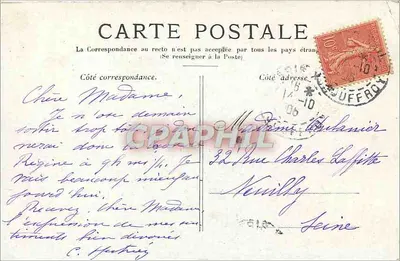 CARTE POSTALE
La Correspondance au recto n'est pas acceptée par tous les pays étran
(Se renseigner à la Poste)
Côté correspondance.
Côté adresse.
Chère Madame,
Je n'ose demain
sortir trop
nerai donc
Régine à 9h
vais beaucoup mieux
jourd'hui.
Recevez, Chère Madame
l'expression de mes sen
timents bien dévoués
Madame
32 Rue Charles Laffitte
Neuilly
Seine
CPAPHIL
10
14-10
06
JOUFFROY